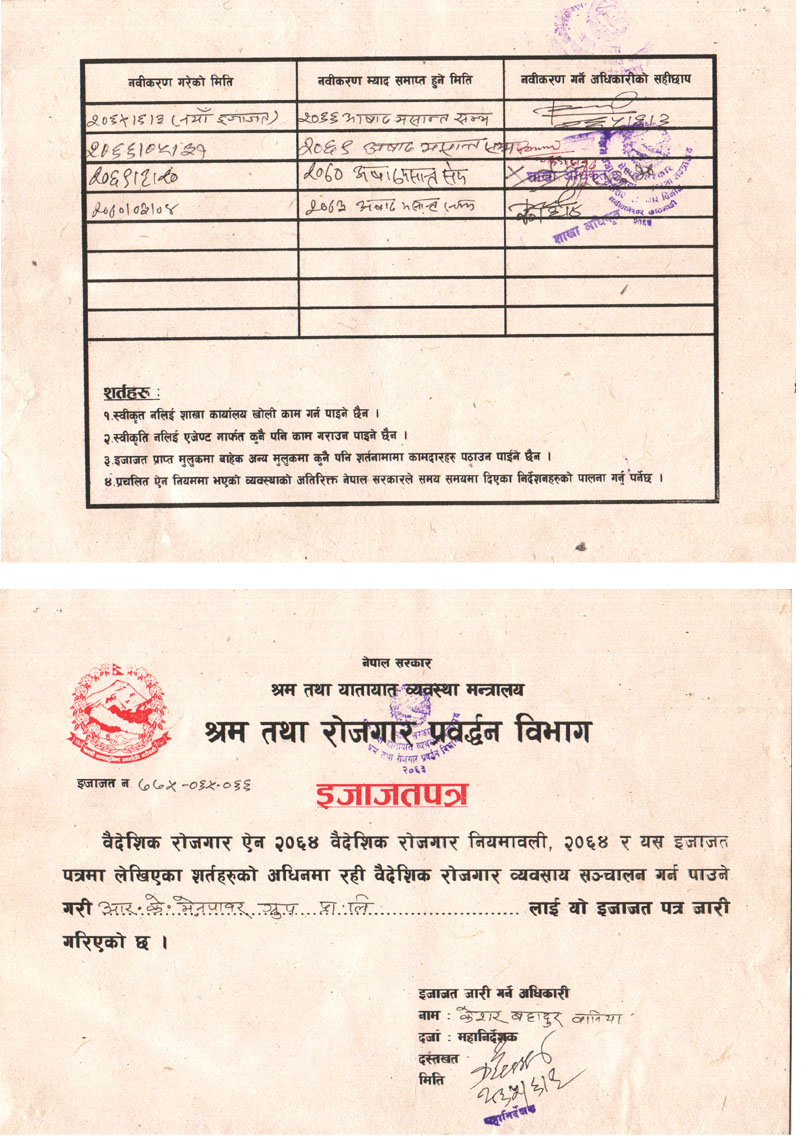 नवीकरण गरेको मिति नवीकरण म्याद समाप्त हुने मिति नवीकरण गर्ने अधिकारीको सहीछाप
२०६५।६।३ (नयाँ इजाजत) २०६६ आषाढ मसान्त सम्म
२०६९ अषाढ मसान्त
२०६९।३।२० २०७० अषाढ मसान्त
शाखा अधिकृत
२०७०।०३।०४ २०७३ अषाढ मसान्त सम्म
शाखा अधिकृत
शर्तहरु :
१.स्वीकृत नलिई शाखा कार्यालय खोली काम गर्न पाइने छैन ।
२.स्वीकृति नलिई एजेण्ट मार्फत कुनै पनि काम गराउन पाइने छैन ।
३.इजाजत प्राप्त मुलुकमा बाहेक अन्य मुलुकमा कुनै पनि शर्तनामामा कामदारहरु पठाउन पाईने छैन ।
४.प्रचलित ऐन नियममा भएको व्यवस्थाको अतिरिक्त नेपाल सरकारले समय समयमा दिएका निर्देशनहरुको पालना गर्नु पर्नेछ ।
नेपाल सरकार
श्रम तथा यातायात व्यवस्था मन्त्रालय
श्रम तथा रोजगार प्रवर्द्धन विभाग
२०६३
इजाजत न ७७५-०६५-०६६
इजाजतपत्र
वैदेशिक रोजगार ऐन २०६४ वैदेशिक रोजगार नियमावली, २०६४ र यस इजाजत
पत्रमा लेखिएका शर्तहरुको अधिनमा रही वैदेशिक रोजगार व्यवसाय सञ्चालन गर्न पाउने
गरी आर.के. मेनपावर ग्रुप प्रा.लि. लाई यो इजाजत पत्र जारी
गरिएको छ ।
इजाजत जारी गर्ने अधिकारी
नाम : केशर बहादुर बानिया
दर्जा : महानिर्देशक
दस्तखत
मिति
महानिर्देशक